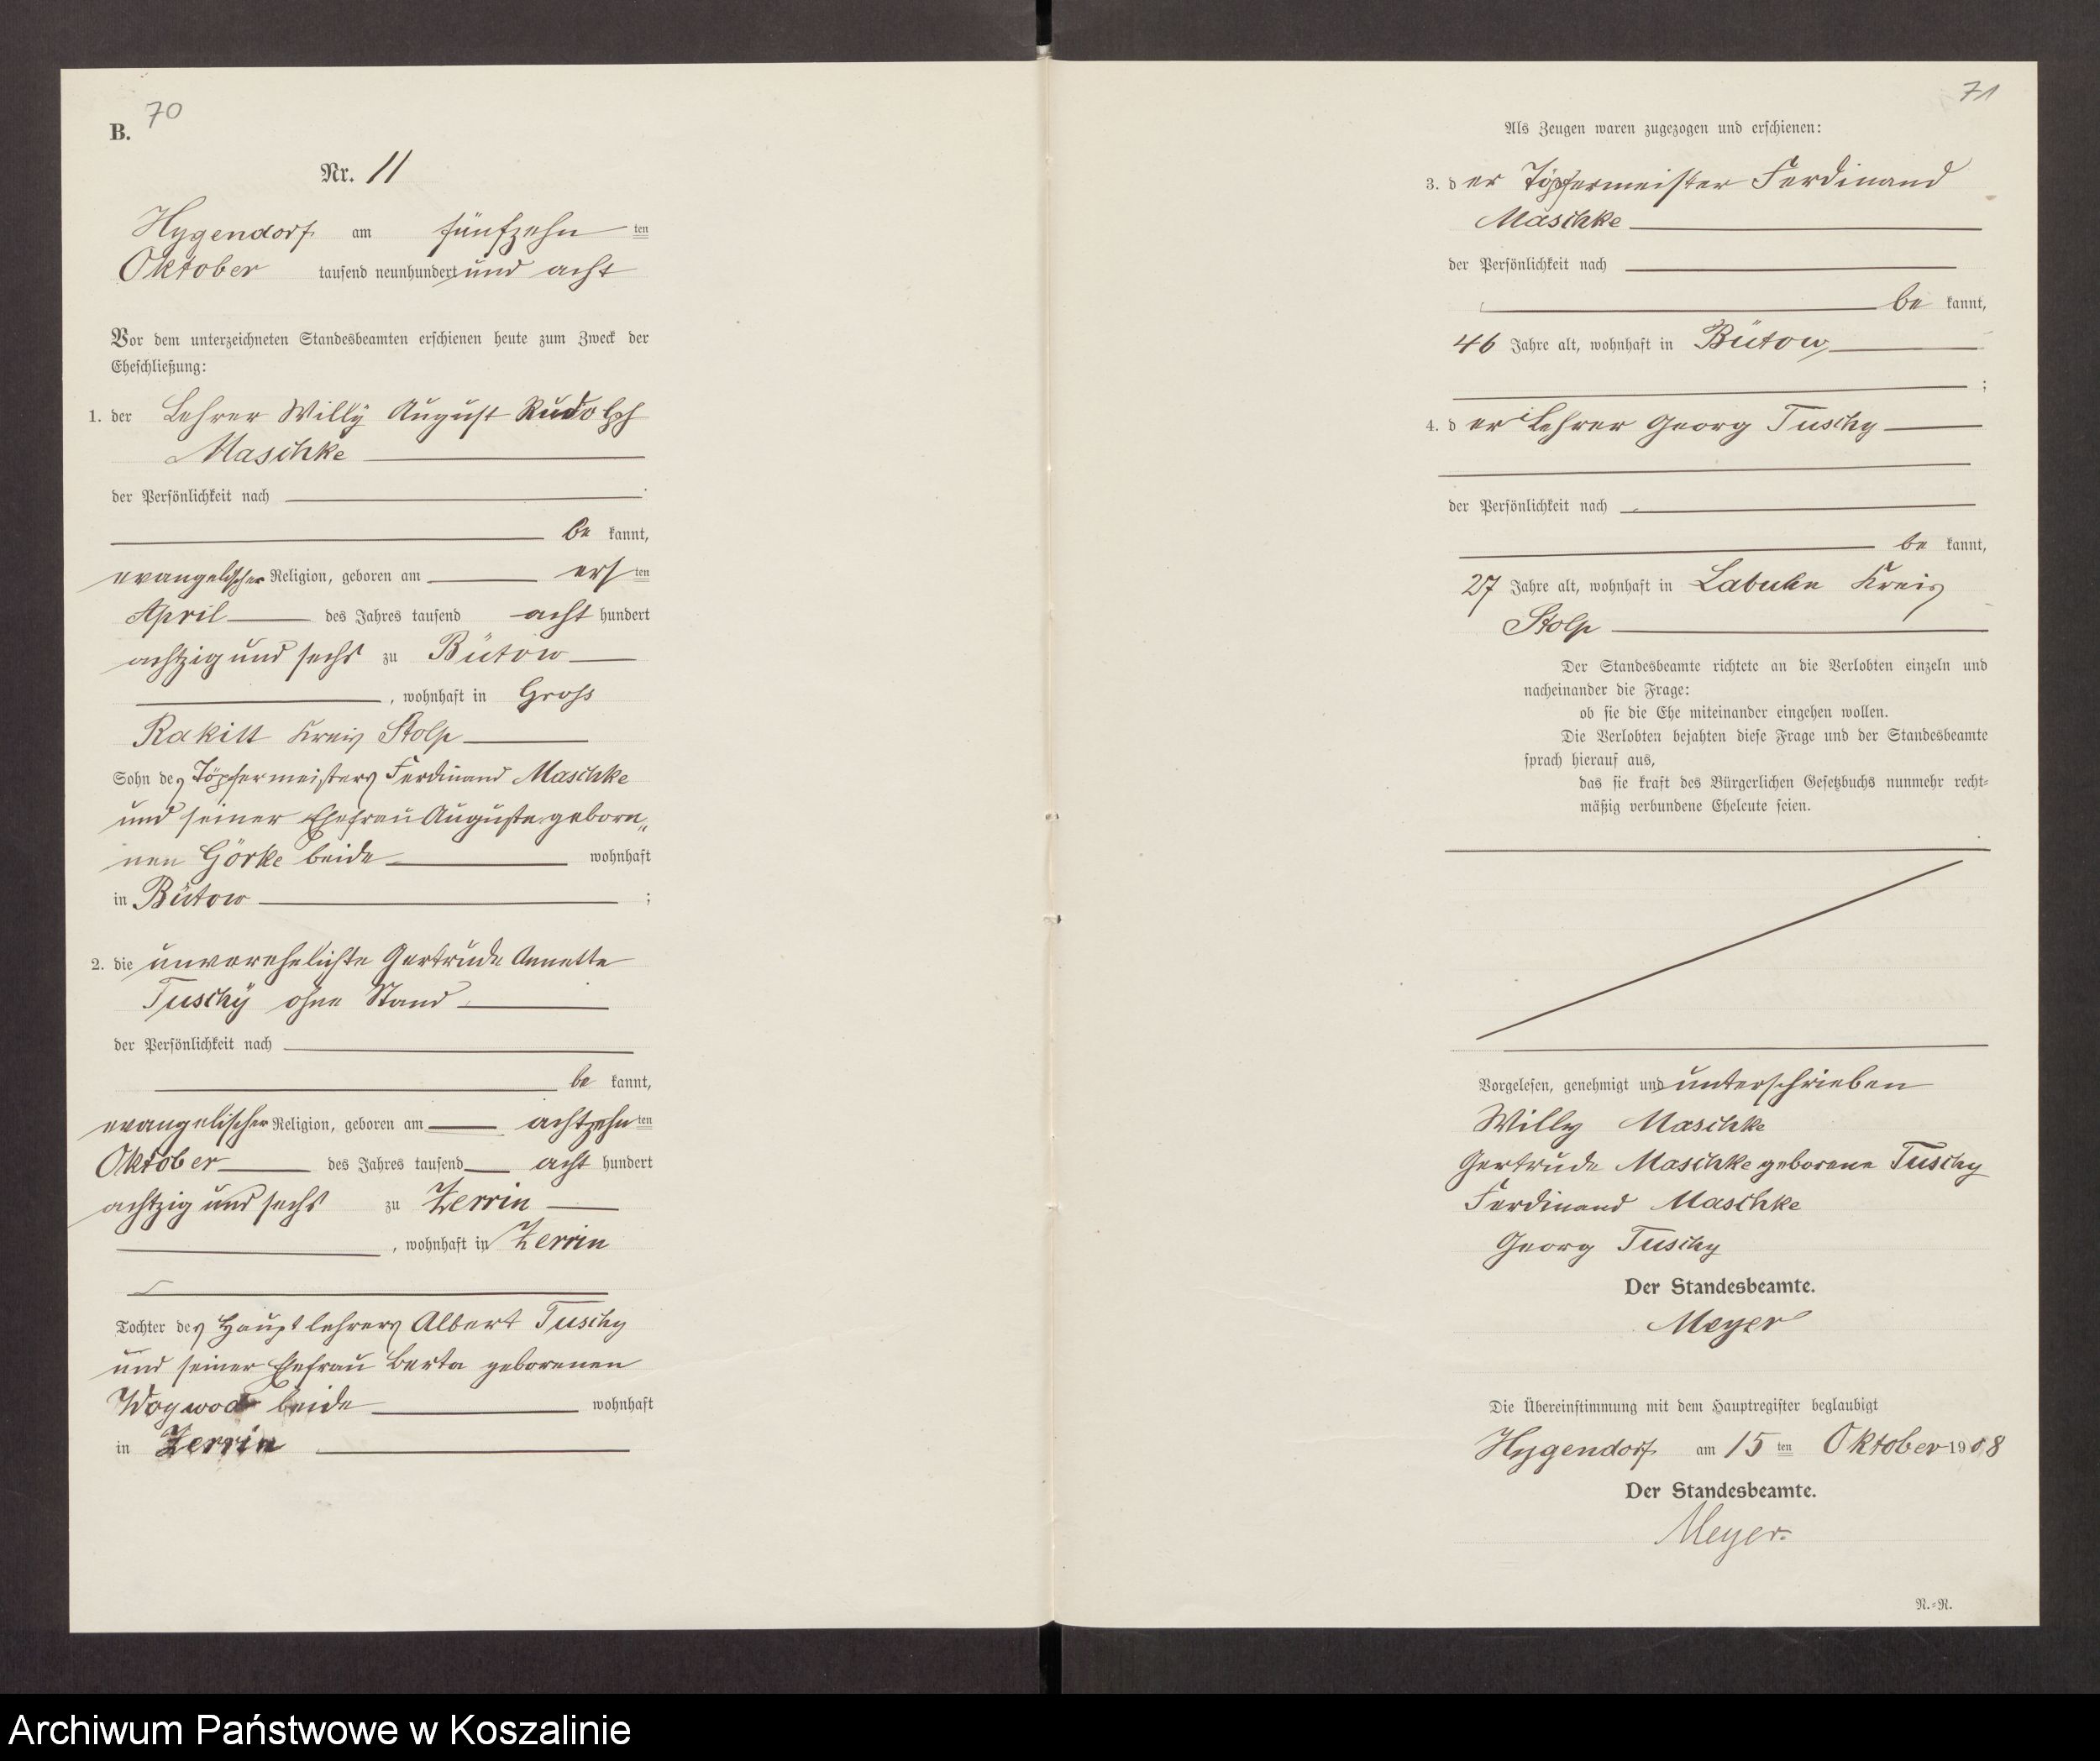 70
B.
Nr. 11
Hygendorf am fünfzehn ten
Oktober tausend neunhundert und acht
Vor dem unterzeichneten Standesbeamten erschienen heute zum Zweck der
Eheschließung:
1. der Lehrer Willy August Rudolph
Maschke
der Persönlichkeit nach
be kannt,
evangelischer Religion, geboren am ers ten
April des Jahres tausend acht hundert
achtzig und sechs zu Bütow
, wohnhaft in Gross
Rakitt Kreis Stolp
Sohn des Töpfermeisters Ferdinand Maschke
und seiner Ehefrau Auguste gebore„
nen Görke beide wohnhaft
in Bütow ;
2. die unverehelichte Gertrude Annette
Tuschÿ ohne Stand
der Persönlichkeit nach
be kannt,
evangelischer Religion, geboren am achtzehn ten
Oktober des Jahres tausend acht hundert
achtzig und sechs zu Zerrin
, wohnhaft in Zerrin
Tochter des Hauptlehrers Albert Tuschy
und seiner Ehefrau Berta geborenen
beide wohnhaft
in Zerrin
71
Als Zeugen waren zugezogen und erschienen:
3. d er Töpfermeister Ferdinand
Maschke
der Persönlichkeit nach
be kannt,
46 Jahre alt, wohnhaft in Bütow
;
4. d er Lehrer Georg Tuschy
der Persönlichkeit nach
be kannt,
27 Jahre alt, wohnhaft in Labuhn Kreis
Stolp
Der Standesbeamte richtete an die Verlobten einzeln und
nacheinander die Frage:
ob sie die Ehe miteinander eingehen wollen.
Die Verlobten bejahten diese Frage und der Standesbeamte
sprach hierauf aus,
das sie kraft des Bürgerlichen Gesetzbuchs nunmehr recht-
mäßig verbundene Eheleute seien.
Vorgelesen, genehmigt und unterschrieben
Willy Maschke
Gertrude Maschke geborene Tuschy
Ferdinand Maschke
Georg Tuschy
Der Standesbeamte.
Meyer
Die Übereinstimmung mit dem Hauptregister beglaubigt
Hygendorf am 15 ten Oktober 1908
Der Standesbeamte.
Meyer.
N.-R.
Archiwum Państwowe w Koszalinie